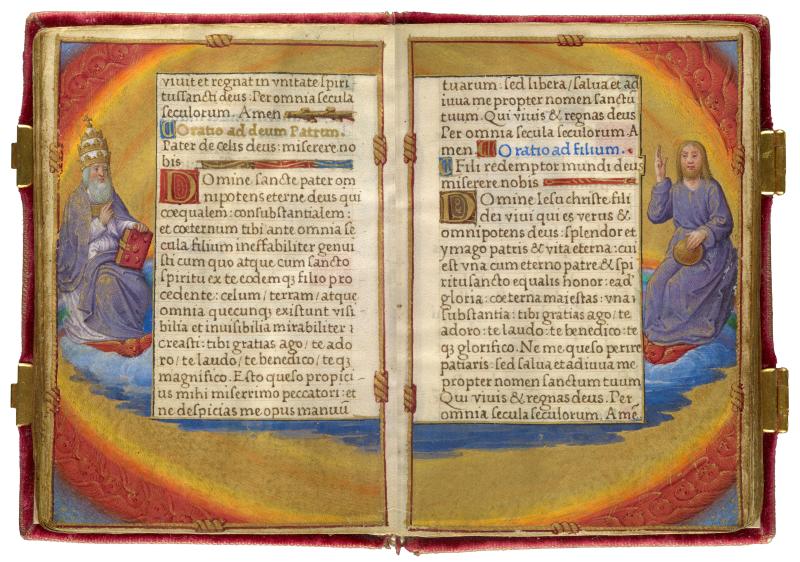 viuit et regnat in vnitate spiri
tussancti deus. Per omnia secula
seculorum. Amen
Oratio ad deum Patrem.
Pater de celis deus: miserere no
bis
Domine sancte pater om
nipotens eterne deus qui
coequalem: consubstantialem:
et coeternum tibi ante omnia se
cula filium ineffabiliter genui
sti cum quo atque cum sancto
spiritu ex te eodemq; filio pro
cedente: celum / terram / atque
omnia quecunq; existunt visi
bilia et inuisibilia mirabiliter
creasti: tibi gratias ago / te ado
ro / te laudo / te benedico / teq;
magnifico. Esto queso propici
us mihi miserrimo peccatori: et
ne despicias me opus manuū
tuarum: sed libera / salua et ad
iuua me propter nomen sanctū
tuum. Qui viuis & regnas deus
Per omnia secula seculorum. A
men. Oratio ad filium.
Fili redemptor mundi deus
miserere nobis
Domine Iesu christe fili
dei viui qui es verus &
omnipotens deus: splendor et
ymago patris & vita eterna: cui
est vna cum eterno patre & spi
ritu sancto equalis honor: ead'
gloria: coeterna maiestas: vna
substantia: tibi gratias ago / te
adoro: te laudo: te benedico: te
q; glorifico. Ne me queso perire
patiaris: sed salua et adiuua me
propter nomen sanctum tuum
Qui viuis & regnas deus. Per
omnia secula seculorum. Amē.